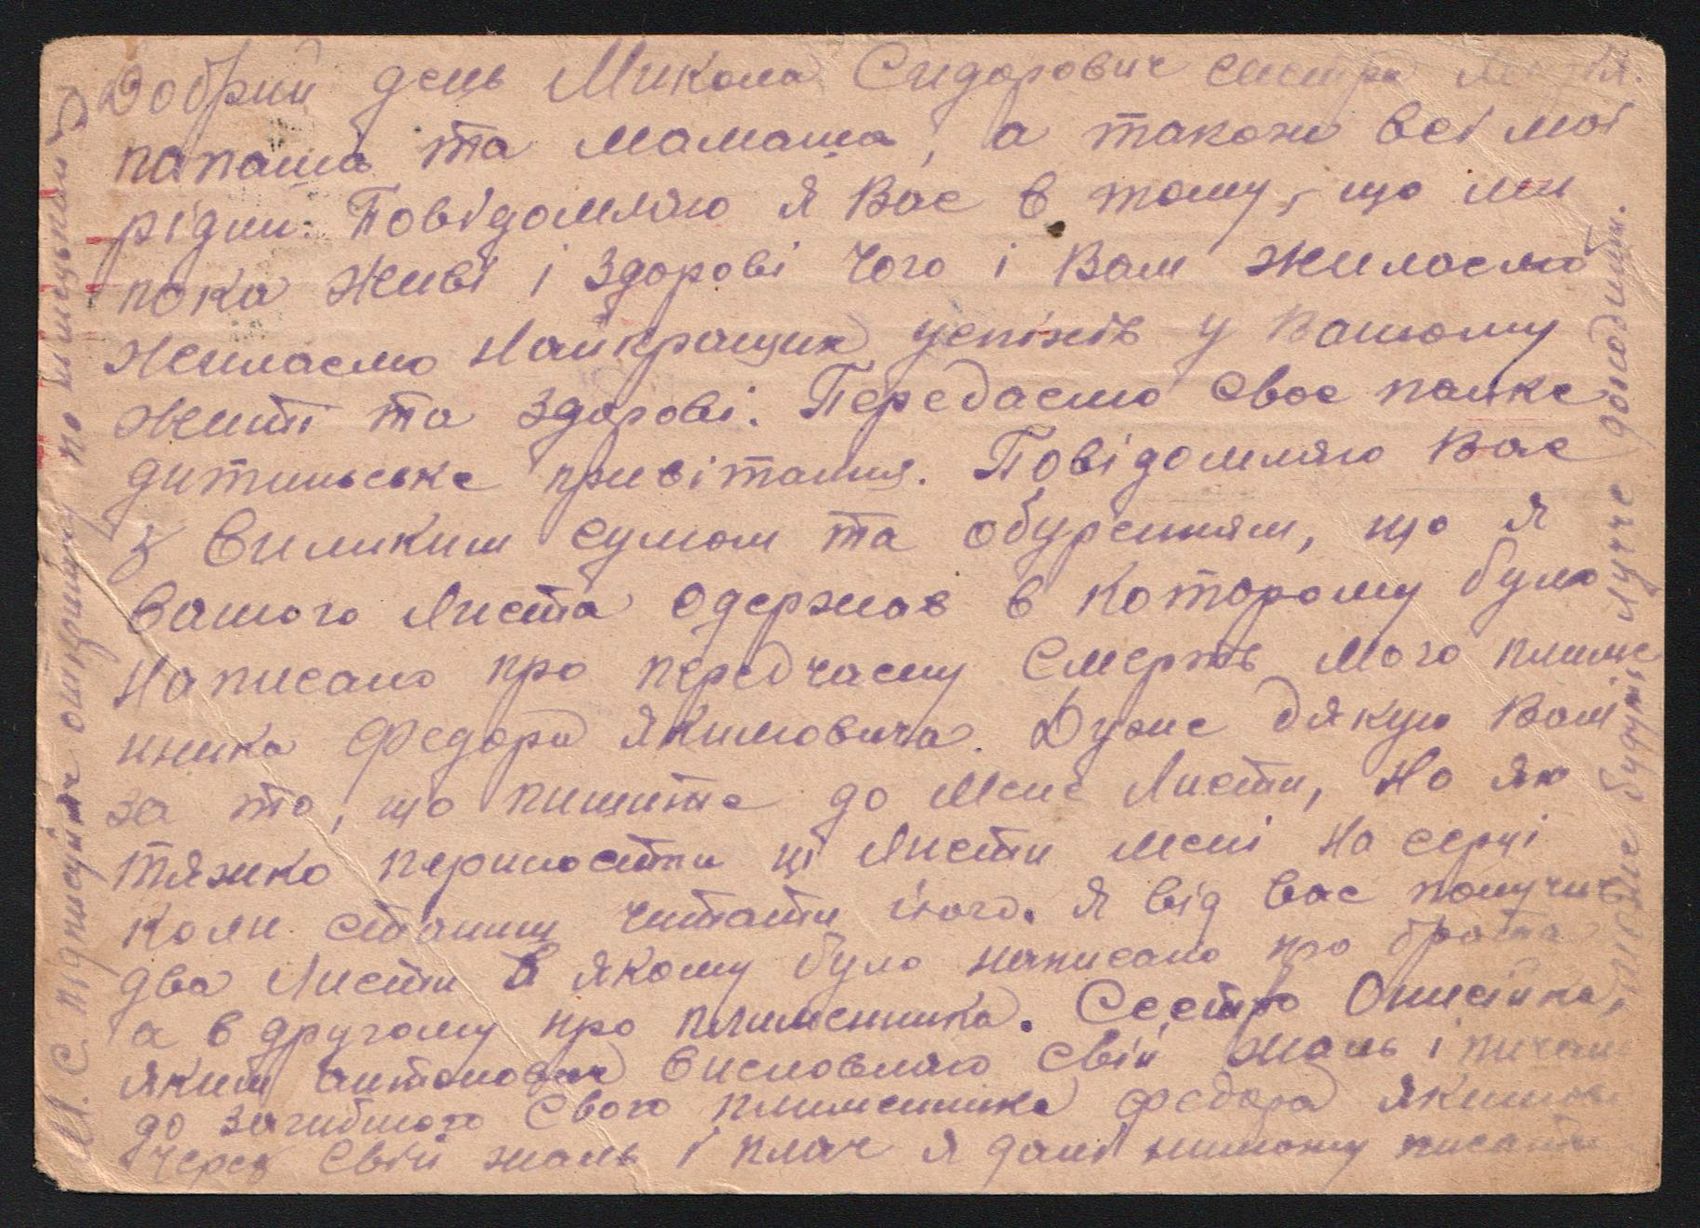 Добрий день Микола Сидорович сестра
папаша та мамаша, а також всі мої
рідни. Повідомляю я Вас в тому, що ми
пока живі і здорові чого і Вам жилаємо
жилаємо найкращих успіхів у Вашому
житті та здорові. Передаємо своє палке
дитиньське привітання. Повідомляю Вас
з виликим сумом та обуренням, що я
Вашого листа одержав в которому було
написано про передчасну смерть мого племе
нника Федора Якимовича. Дуже дякую Вам
за то, що пишите до мене листи, но як
тяжко пириности ці листи мені на серці
коли станиш читати його. Я від вас получив
два листи в якому було написано про брата
а в другому про плименника. Сестро Онисійка,
Яким Антонович висловляю свій жаль і
до загибшого свого плименника Федора
Через свій жаль і плач я далі нишому писати
М. С. підписуйте открытку по німецький
лучче доходити.